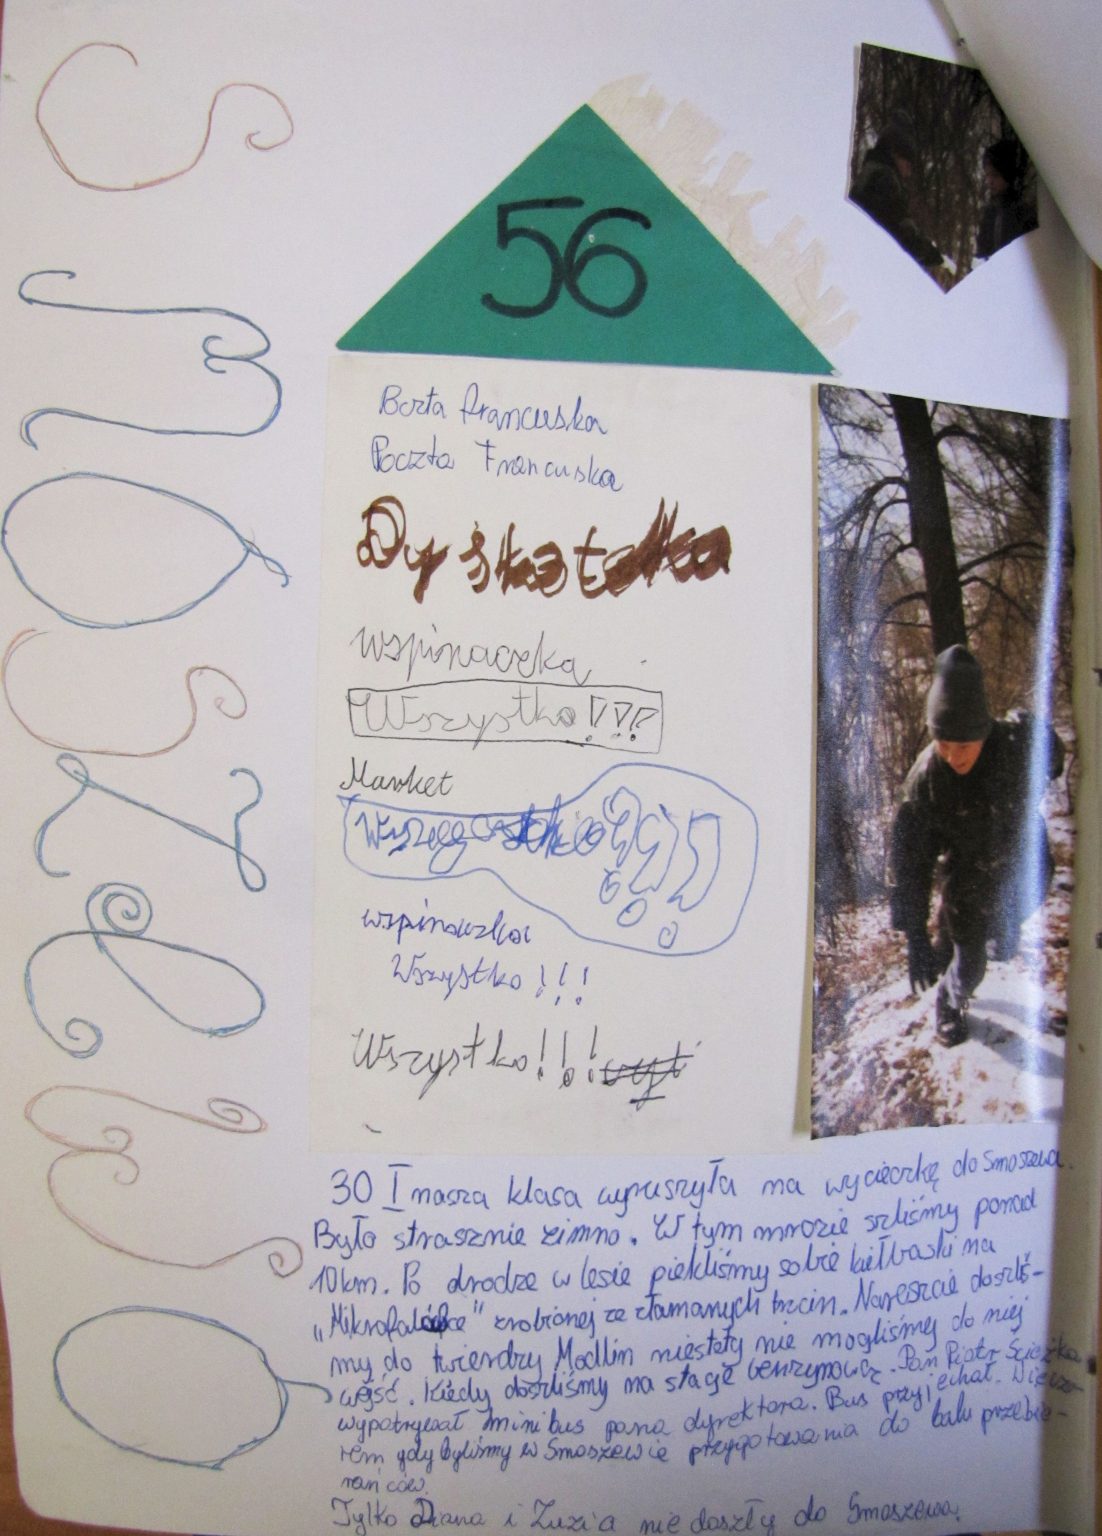 Smoszewo
56
Poczta Francuska
Dyskoteka
wspinaczka
Wszystko!!!
Market
wspinaczka
Wszystko!!!
Wszystko!!!
30 I nasza klasa wyruszyła na wycieczkę do Smoszewa.
Było strasznie zimno. W tym mrozie szliśmy ponad
10km. Po drodze w lesie piekliśmy sobie kiełbaski na
„Mikrofalówce" zrobionej ze złamanych trzcin. Nareszcie doszliś-
my do twierdzy Modlin niestety nie mogliśmy do niej
wejść. Kiedy doszliśmy na stację benzynową. Pan Piotr Ścieżka
wypatrywał minibus pana dyrektora. Bus przyjechał. Wieczo-
rem gdy byliśmy w Smoszewie przygotowania do balu przebie-
rańców.
Tylko Diana i Zuzia nie doszły do Smoszewa.